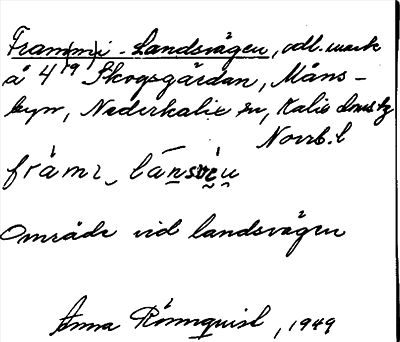 Fram(m)i-Landsvägen, odl. mark
å 4¹⁹ Skogsgärdan, Måns-
byn, Nederkalix sn, Kalix domsg
Norrb. l
Område vid landsvägen
Anna Rönnquist, 1949